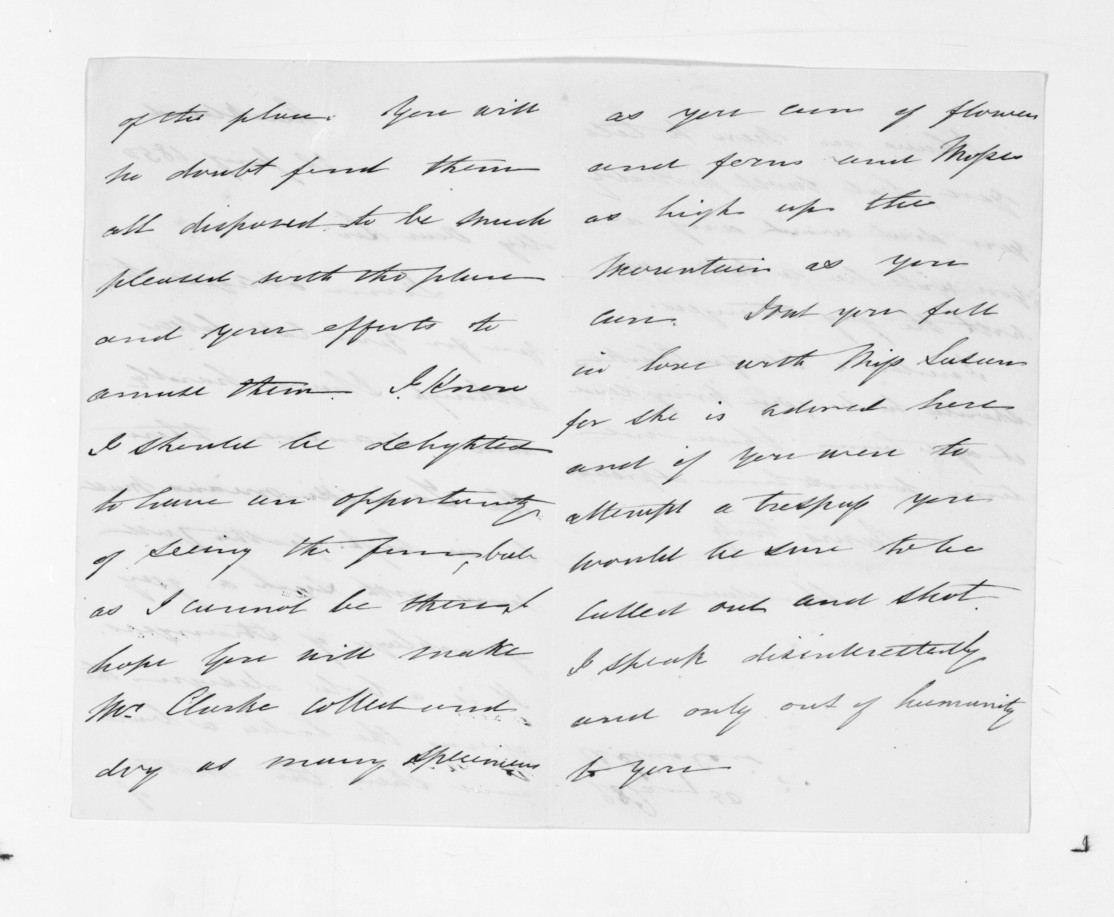 of the place. You will
no doubt find them
all disposed to be much
pleased with the place
and your efforts to
amuse them. I know
I should be delighted
to have an opportunity
of seeing the fun, but
as I cannot be there I
hope you will make
Mr. Clarke collect and
dry as many specimens
as you can of flowers
and ferns and Mosses
as high up the
Mountain as you
can. Dont you fall
in love with Miss Susan
for she is adored here
and if you were to
attempt a trespass you
would be sure to be
called out and shot.
I speak disinterestedly
and only out of humanity
to you